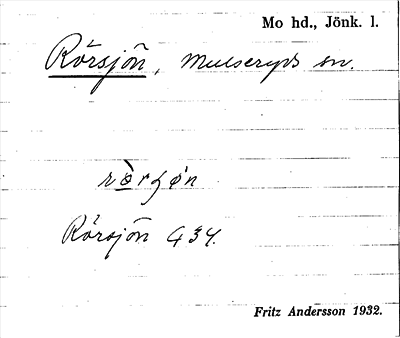 Mo hd., Jönk. l.
Rörsjön, Mulseryds sn.
Rörsjön G34.
Fritz Andersson 1932.